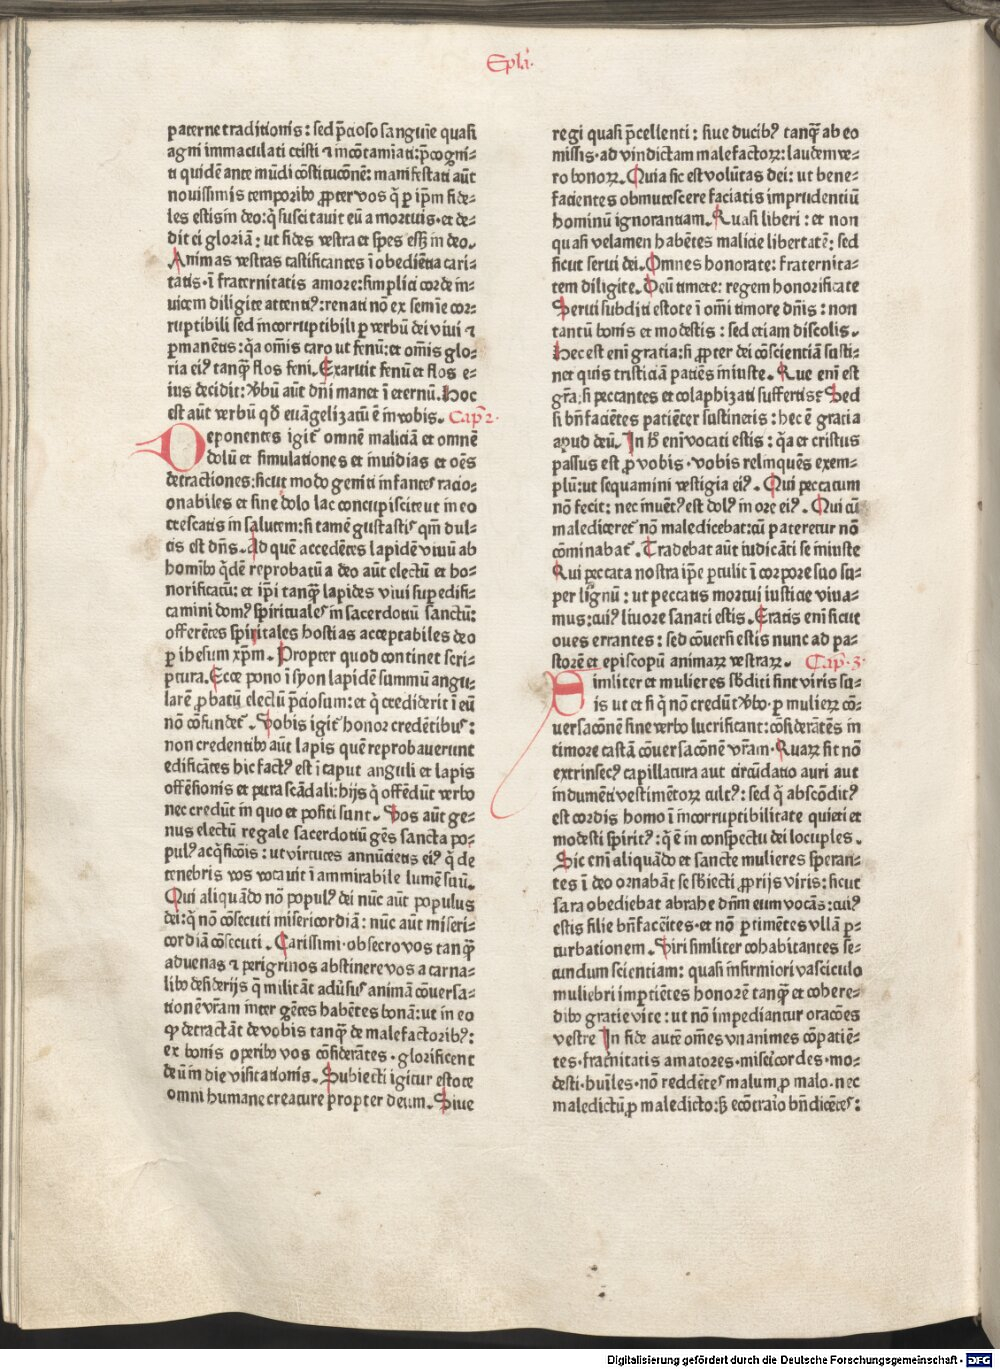 Epla.
paterne traditionis: sed p̄cioso sanguīe quasi
agni immaculati cristi ⁊ incōtamīati: p̄cogni-
ti quidē ante mūdi cōstitucōnē: manifestati aūt
nouissimis temporibꝰ ꝓpter vos q̄ ꝑ ip̄m fide-
les estis in deo: q̄ suscitauit eū a mortuis. et de-
dit ei gloriā: ut fides vestra et spes esset in deo.
Animas vestras castificantes ī obediētia cari-
tatis. ī fraternitatis amore: simplici corde in-
uicem diligite attentiꝰ: renati nō ex semīe cor-
ruptibili sed incorruptibili ꝑ verbū dei viui ⁊
ꝑmanētis: q̄a om̄is caro ut fenū: et om̄is glo-
ria eiꝰ tanqᷓ flos feni. Exaruit fenū et flos e-
ius decidit: v̓bū aūt dn̄i manet ī eternū. Hoc
est aūt verbū qđ euāgelizatū ē in vobis. Cap̄. 2.
Deponentes igit̄ omnē maliciā et omnē
dolū et simulationes et inuidias et oēs
detractiones: sicut modo geniti infantes racio-
nabiles et sine dolo lac concupiscite ut in eo
crescatis in salutem: si tamē gustastis qm̄ dul-
cis est dn̄s. Ad quē accedētes lapidē viuū ab
homībꝰ q̄dē reprobatū a deo aūt electū et ho-
norificatū: et ip̄i tanqᷓ lapides viui suꝑedifi-
camini domꝰ spirituales in sacerdotiū sanctū:
offerētes spiritales hostias acceptabiles deo
ꝑ ihesum xp̄m. Propter quod continet scri-
ptura. Ecce pono ī syon lapidē summū angu-
larē ꝓbatū electū p̄ciosum: et q̄ crediderit ī eū
nō cōfundet̄. Vobis igit̄ honor credētibus:
non credentibꝰ aūt lapis quē reprobauerunt
edificātes hic factꝰ est ī caput anguli et lapis
offēsionis et petra scādali: hijs q̄ offēdūt verbo
nec credūt in quo et positi sunt. Vos aūt ge-
nus electū regale sacerdotiū gēs sancta po-
pulꝰ acq̄sicōis: ut virtutes annūcietis eiꝰ q̄ de
tenebris vos vocauit ī ammirabile lumē suū.
Qui aliquādo nō populꝰ dei nūc aūt populus
dei: q̄ nō cōsecuti misericordiā: nūc aūt miseri-
cordiā cōsecuti. Carissimi. obsecro vos tanqᷓ
aduenas ⁊ perigrinos abstinere vos a carna-
libꝰ desiderijs q̄ militāt adūsus animā cōuersa-
tionē vr̄am inter gētes habētes bonā: ut in eo
ꝙ detractāt de vobis tanqᷓ de malefactoribꝰ:
ex bonis operibꝰ vos cōsiderātes. glorificent
deū in die visitationis. Subiecti igitur estote
omni humane creature propter deum. Siue
regi quasi p̄cellenti: siue ducibꝰ tanqᷓ ab eo
missis. ad vindictam malefactoꝝ: laudem ve-
ro bonoꝝ. Quia sic est volūtas dei: ut bene-
facientes obmutescere faciatis imprudentiū
hominū ignorantiam. Quasi liberi: et non
quasi velamen habētes malicie libertatē: sed
sicut serui dei. Omnes honorate: fraternita-
tem diligite. Deū timete: regem honorificate
Serui subditi estote ī om̄i timore dn̄is: non
tantū bonis et modestis: sed etiam discolis.
Hec est enī gratia: si ꝓpter dei cōscientiā susti-
net quis tristiciā patiēs iniuste. Que enī est
gr̄a: si peccantes et colaphizati suffertis? Sed
si bn̄ faciētes patiēter sustinetis: hec ē gratia
apud deū. In hͦ enī vocati estis: q̄a et cristus
passus est ꝓ vobis. vobis relinquēs exem-
plū: ut sequamini vestigia eiꝰ. Qui peccatum
nō fecit: nec inuētꝰ est dolꝰ in ore eiꝰ. Qui cū
malediceret̄ nō maledicebat: cū pateretur nō
cōminabat̄. Tradebat aūt iudicāti se iniuste
Qui peccata nostra ip̄e ꝑtulit ī corpore suo su-
per lignū: ut peccatis mortui iusticie viua-
mus: cuiꝰ liuore sanati estis. Eratis enī sicut
oues errantes: sed cōuersi estis nunc ad pa-
storē et episcopū animaꝝ vestraꝝ. Cap̄. 3.
Similiter et mulieres sb̄diti sint viris su-
is ut et si q̄ nō credūt v̓bo. ꝑ mulieꝝ cō-
uersacōnē sine verbo lucrificant: cōsiderātēs in
timore castā cōuersacōnē vr̄am. Quaꝝ sit nō
extrinsecꝰ capillatura aut circūdatio auri aut
indumēti vestimētoꝝ cultꝰ: sed q̄ abscōditꝰ
est cordis homo ī incorruptibilitate quieti et
modesti spiritꝰ: q̄ ē in conspectu dei locuples.
Sic enī aliquādo et sancte mulieres speran-
tes ī deo ornabāt se sb̄iecti ꝓprijs viris: sicut
sara obediebat abrahe dn̄m eum vocās: cuiꝰ
estis filie bn̄facēites. et nō ꝑtimētes vllā ꝑ-
turbationem. Viri similiter cohabitantes se-
cundum scientiam: quasi infirmiori vasculo
muliebri imꝑtiētes honorē tanqᷓ et cohere-
dibꝰ gratie vite: ut nō impediantur oracōes
vestre In fide autē om̄es vnanimes cōpatiē-
tes. frat̄nitatis amatores. misericordes. mo-
desti. huīles. nō reddētes malum ꝓ malo. nec
maledictū ꝓ maledicto: sꝫ ecōtrario bn̄dicētes:
Digitalisierung gefördert durch die Deutsche Forschungsgemeinschaft - DFG